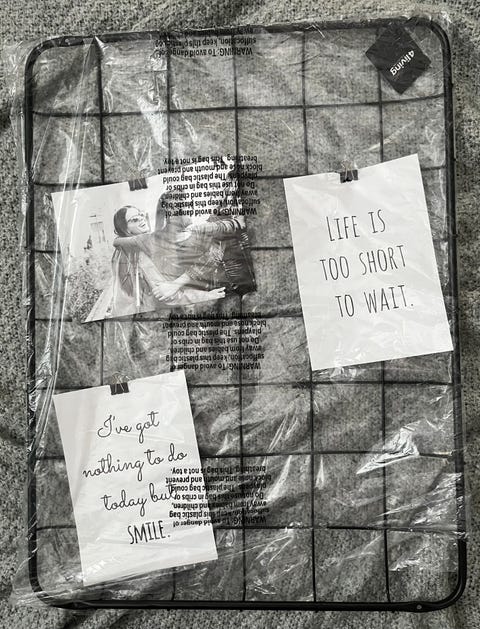 4living
WARNING: To avoid danger of
suffocation, keep this plastic bag
LIFE IS
TOO SHORT
TO WAIT.
WARNING: To avoid danger of
suffocation, keep this plastic bag
away from babies and children.
Do not use this bag in cribs or
playpens. The plastic bag could
block nose and mouth and prevent
breathing. This bag is not a toy.
WARNING: To avoid danger of
suffocation, keep this plastic bag
away from babies and children.
Do not use this bag in cribs or
playpens. The plastic bag could
block nose and mouth and prevent
breathing. This bag is not a toy.
I've got
nothing to do
today but
SMILE.
WARNING: To avoid danger of
suffocation, keep this plastic bag
away from babies and children.
Do not use this bag in cribs or
playpens. The plastic bag could
block nose and mouth and prevent
breathing. This bag is not a toy.